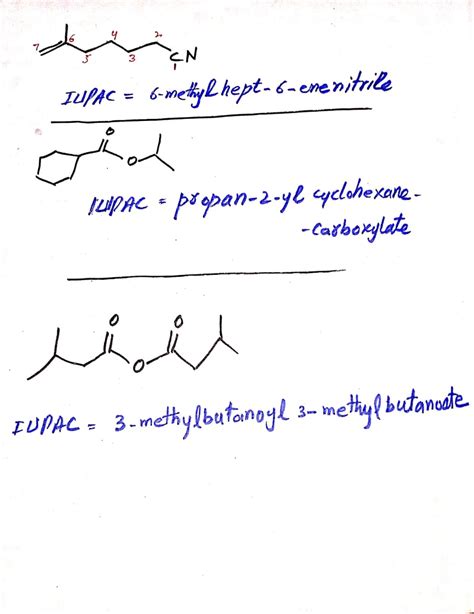 7 6 5 4 3 2 1 CN
IUPAC = 6-methylhept-6-enenitrile
O
O
IUPAC = propan-2-yl cyclohexane-
-carboxylate
O O
O
IUPAC = 3-methylbutanoyl 3-methylbutanoate